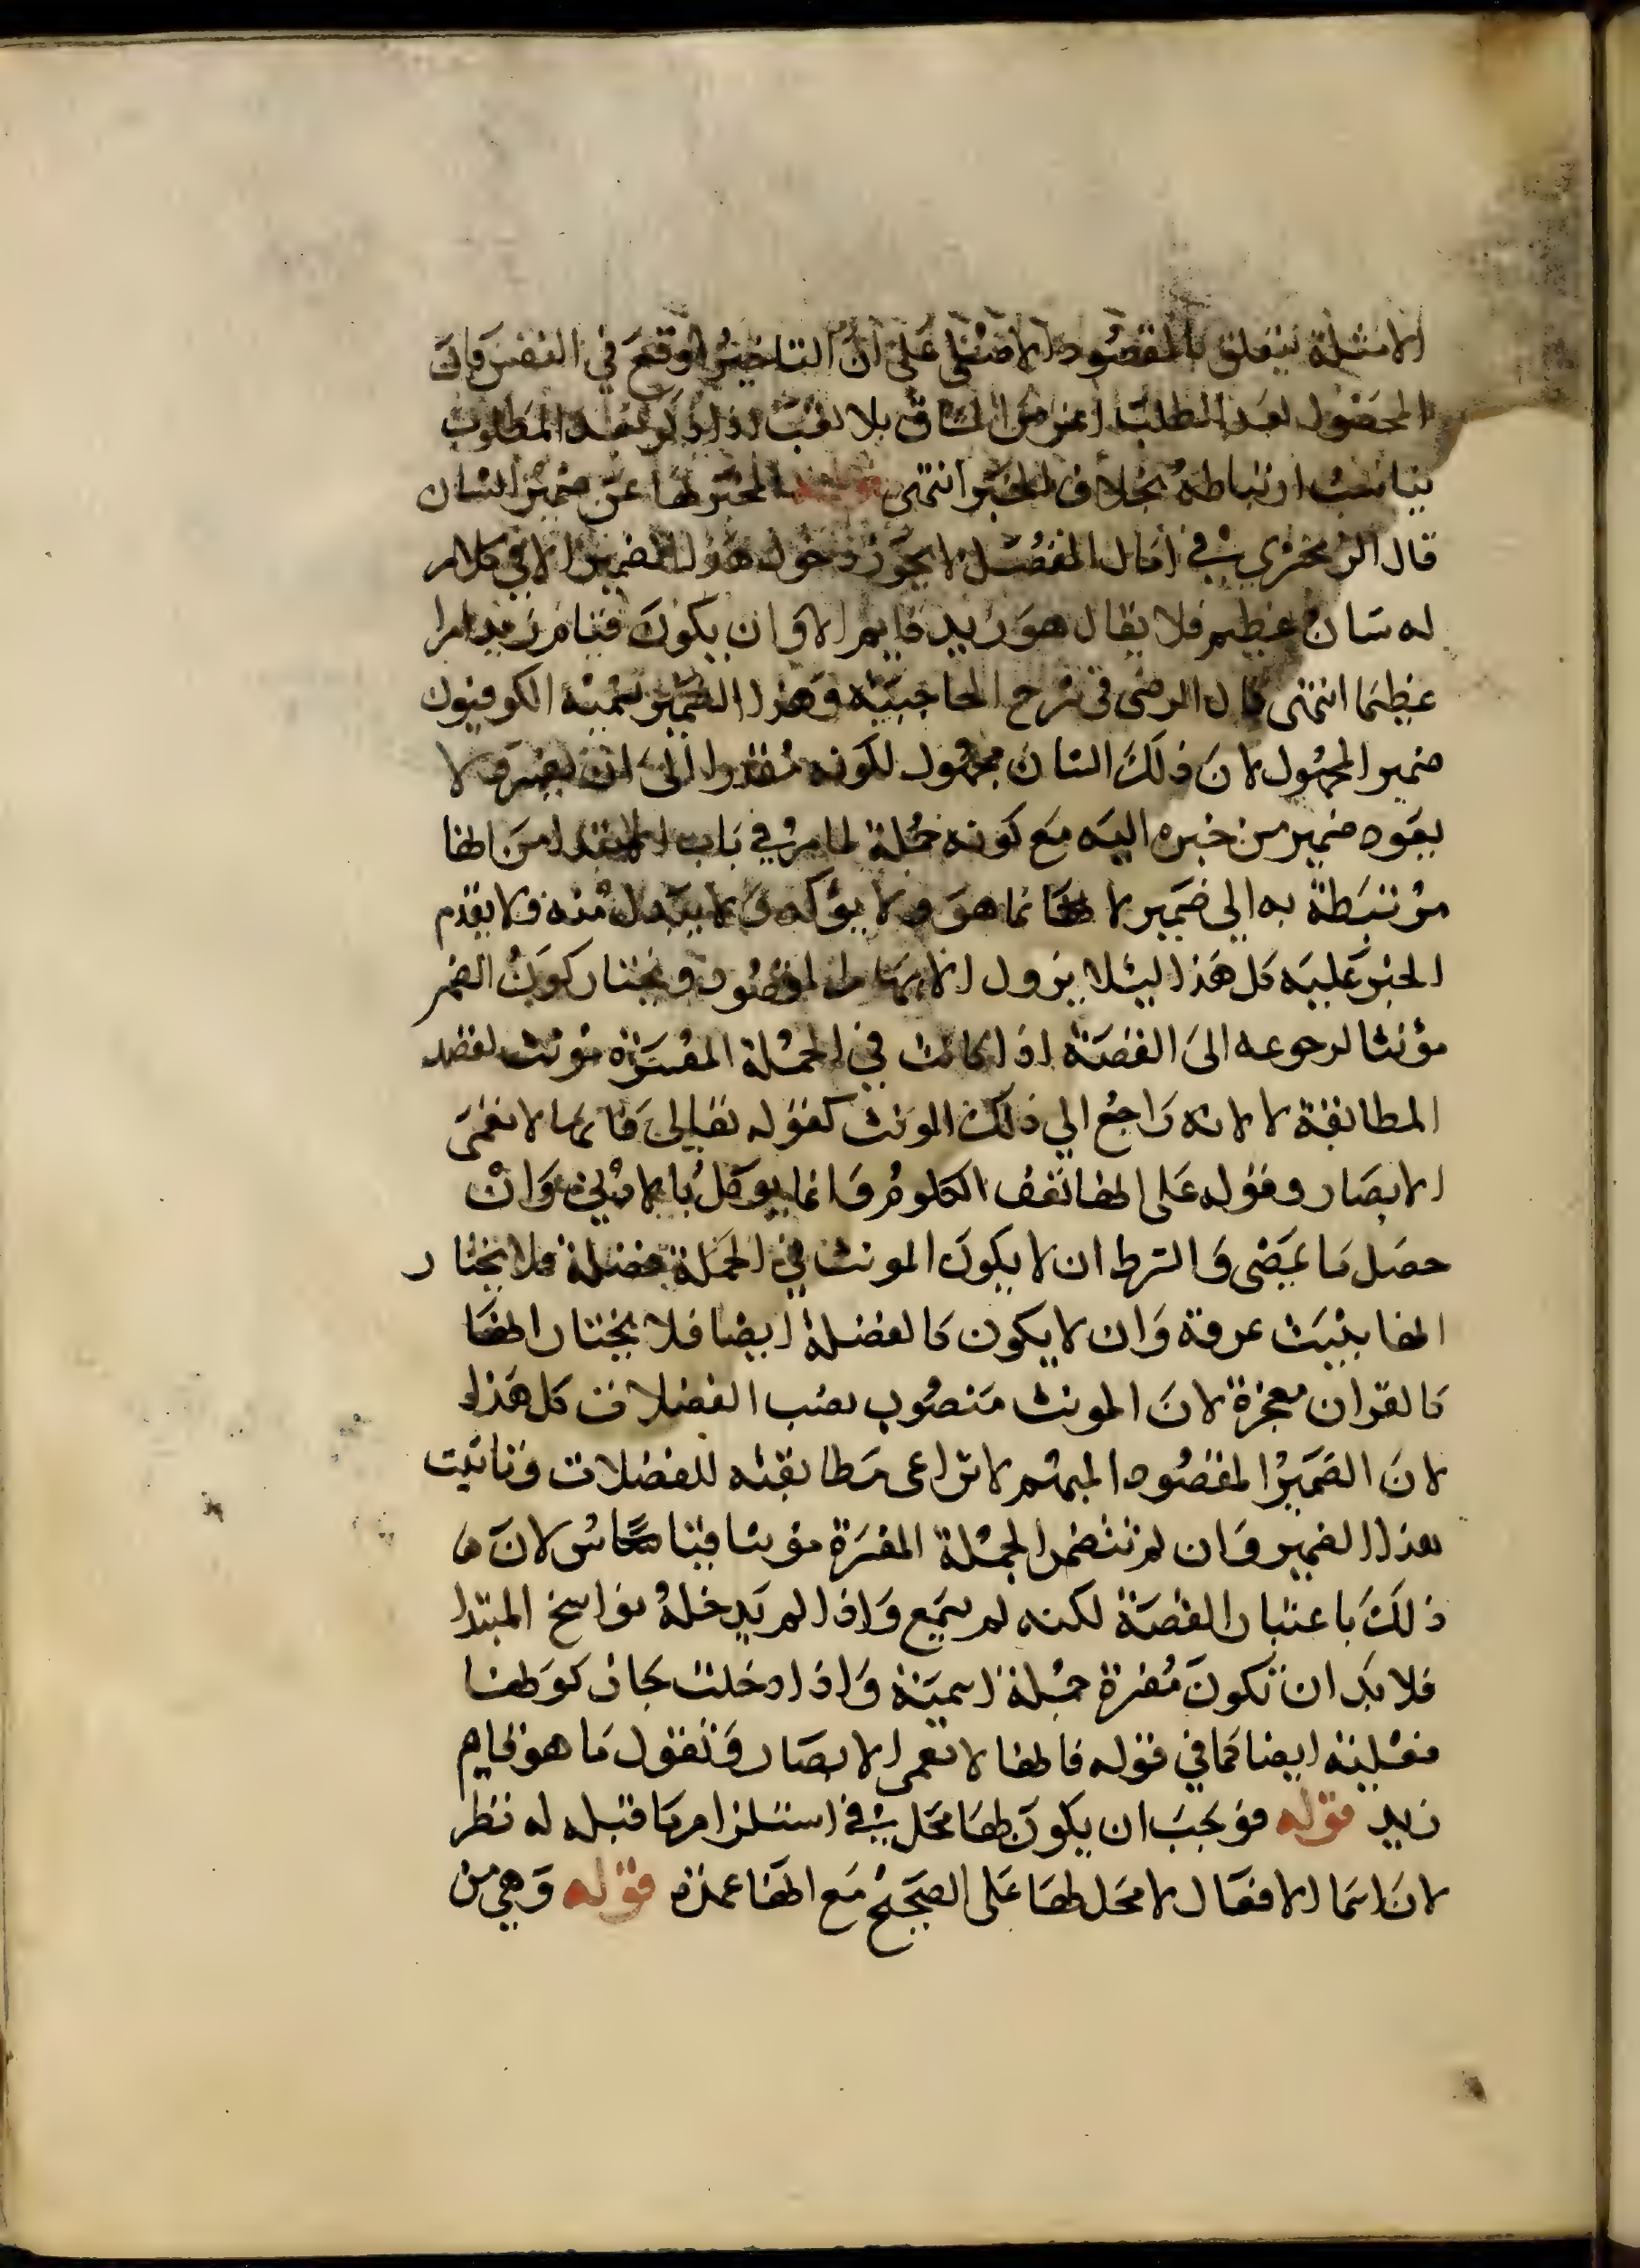 الامثلة يتعلق بالمقصود الاصلي على ان التاخير اوقع في النفس فان
الحصول بعد الطلب اعز من المنساق بلا تعب لذا المطلوب
ارتباطه بخلاف الخبر انتهى قوله المخبر بها عن ضمير الشان
قال الزمخشري في امال المفصل لا يجوز دخول هذا الضمير الا في كلام
له شان عظيم فلا يقال هو زيد قايم الا وان يكون قيام زيد امرا
عظيما انتهى قال الرضى في شرح الحاجبية وهذا الضمير تسميه الكوفيون
ضمير المجهول لان ذلك الشان مجهول لكونه مقدرا الى ان يفسر ولا
يعود ضمير من خبره اليه مع كونه جملة لما مر في باب المبتدا من انها
مرتبطة به الى ضمير لانها نما هو ولا يؤكد ولا يبدل منه ولا يقدم
الخبر عليه كل هذا ليلا يزول الابهام المقصود ويختار كون الضمير
مؤنثا لرجوعه الى القصة اذا كانت في الجملة المفسرة مونث لقصد
المطابقة لا لانه راجع الي ذلك المونث كقوله تعالى فانها لا تعمى
الابصار وقوله على انها تعفو الكلوم وانما يوكل بالادنى وان
حصل ما يمضى والشرط ان لا يكون المونث في الجملة فضلة فلا يختار
انها بنيت غرفة وان لا يكون كالفضلة ايضا فلا يختار انها
كالقران معجزة لان المونث منصوب نصب الفضلات كل هذا
لان الضمير المقصود المبهم لا تراعى مطابقته للفضلات وتانيث
هذا الضمير وان لم تتضمن الجملة المفسرة مؤنثا قياسا لان ما
ذلك باعتبار القصة لكنه لم يسمع واذا لم يدخله نواسخ المبتدا
فلا بد ان تكون مفسرة جملة اسمية واذا دخلت جاز كونها
فعلية ايضا كما في قوله فانها لا تعمى الابصار وتقول ما هو قايم
زيد قوله فوجب ان يكون لها محل في استلزام ما قبله له نظر
لان اسما الافعال لا محل لها على الصحيح مع انها عمدة قوله وهي من